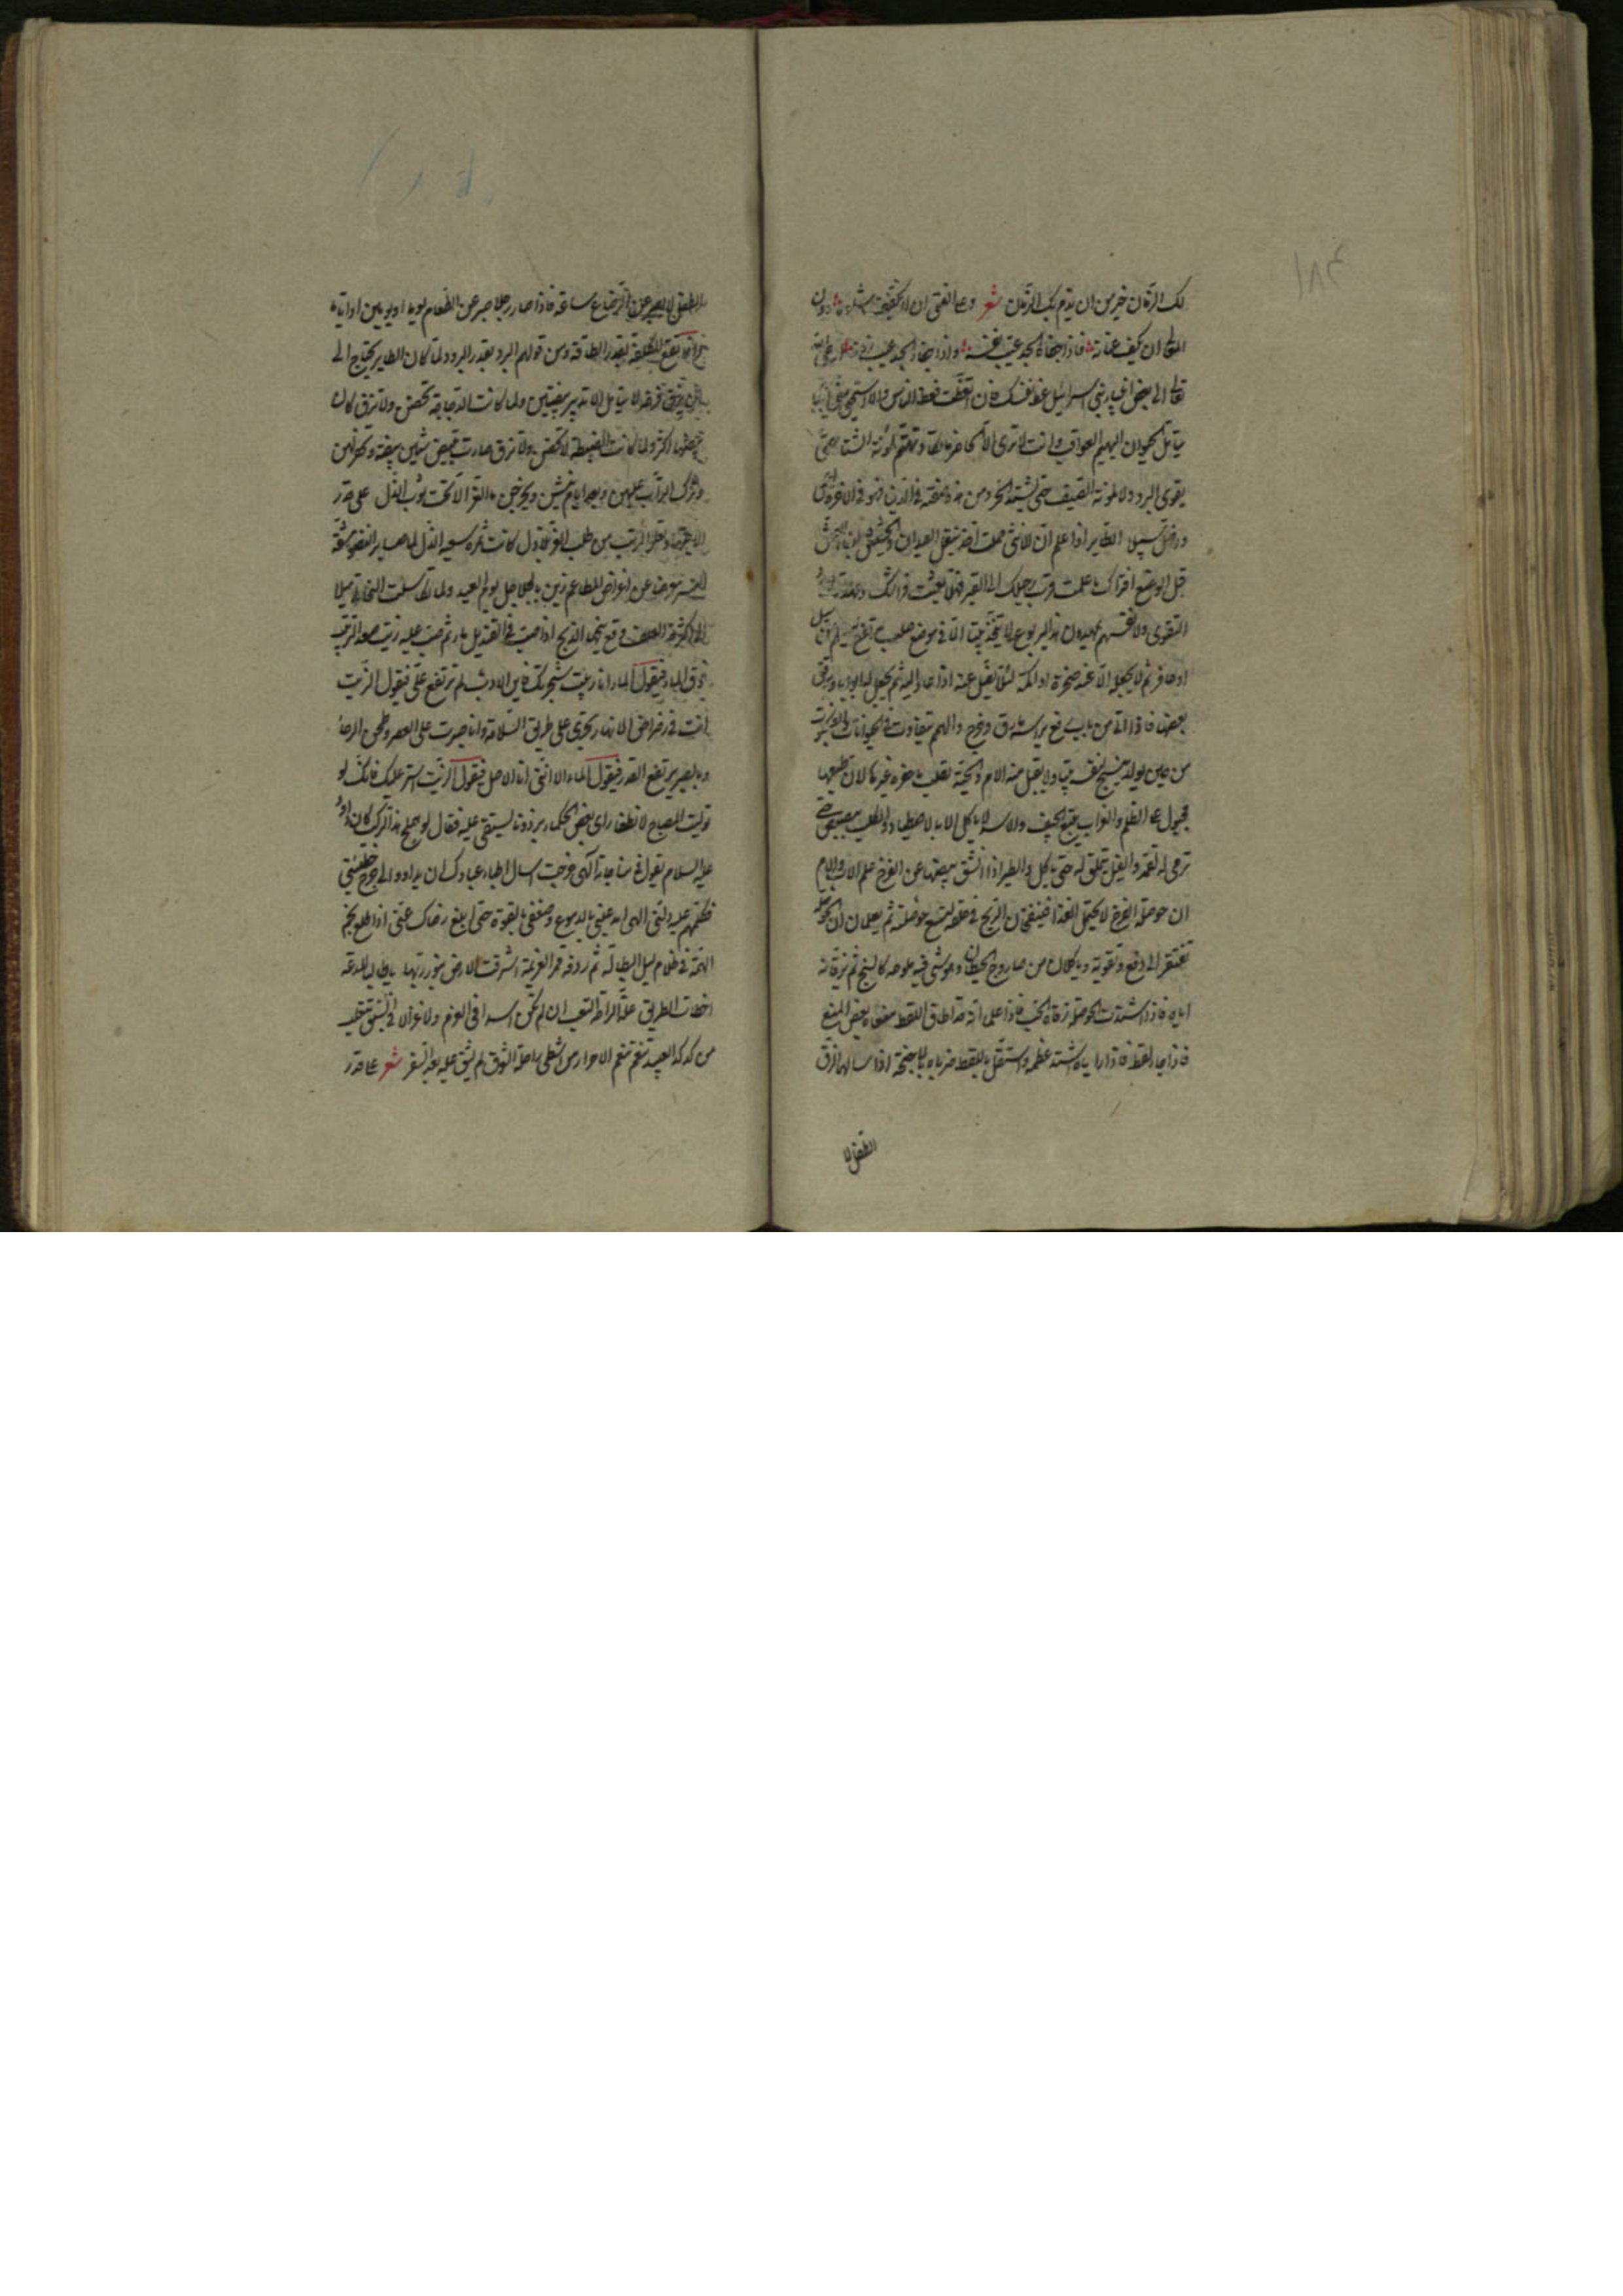 لك الزمان خير من ان يذم بك الزمان شعر وعلى الفتى ان لا يكفكف شاوه دون
المدى ان يكف عنانه فاذا جفاه المجد عيب نفسه واذا جفاه الجد عيب زمانه اوحى الله
تعالى الى بعض انبياء بني اسرائيل عظ نفسك فان اتعظت فعظ الناس والا استحي مني
يتأمل الحيوان البهيم العواقب وانت لا ترى الا الحاضر ما تكاد تهتم لمؤنة الشتاء حتى
يقوى البرد ولا لمونة الصيف حتى يشتد الحر ومن هذه صفته في الدنيا فهو في الاخرة اعمى
واضل سبيلا الطاير اذا علم ان الانثى حملت اخذ ينقل العيدان والحشيش لبناء العش
قبل الوضع افتراك ما علمت قرب رحيلك الى القبر فهلا بعثت فراش
التقوى ولانفسهم يمهدون هذا اليربوع لا يتخذ بيتا الا في موضع صلب
او حافر ثم لا يجعله الا عند صخرة او اكمة لئلا يضل عنه اذا عاد اليه ثم يجعل له ابوابا ويرقق
بعضها فاذا اتي من باب دفع براسه ما رق وخرج والهمم تتفاوت في الحيوانات العنكبوت
من حين يولد ينسج لنفسه بيتا ولا يقبل منة الام والحية تطلب ما حفره غيرها لان طبعها
مجبول على الظلم والغراب يتبع الجيف والاسد لا ياكل الا ما اصطياد والكلب يبصبص حتى
ترمى له لقمة والفيل يتملق له حتى ياكل والطير اذا انشق بيضها عن الفرخ علم الاب والام
ان حوصلة الفرخ لا تحتمل الغذا فينفخان الريح في حلقه لتتسع حوصلته ثم يعلمان ان الحوصلة
تفتقر الى دبغ وتقوية فياكلان من صاروج الحيطان وهو شي فيه ملوحة كالسبخ ثم يزقانه
اياه فاذا اشتدت الحوصلة زقاه الحب فاذا علما انه قد اطاق اللقط منعاه بعض المنع
فاذا جاع لقط فاذا راياه اشتد عظمه واستقل باللقط ضرباه بالاجنحة اذا سالهما الزق
الطفل لا
الطفل لا يصبر عن الرضاع ساعة فاذا صار رجلا صبر عن الطعام يوما او يومين
انما تقع الكلفة بقدر الطاقة ومن قولهم البرد بقدر البرود لما كان الطاير يحتاج الى
ان يزق فرخه لا يتأمل الا تدبير بيضتين ولما كانت الدجاجة تحضن ولا تزق كان
بيضها اكثر ولما كانت الضبة لا تحضن ولا تزق صارت تبيض ستين بيضة وتحفر لهن
وتترك التراب عليهن وبعد ايام ينبش ويخرجن ما العز الا تحت ثوب الذل على قدر
الاجتهاد تعلو الرتب من طلب العز بلا ذل كانت ثمرة سعيه الذل لما صابر
معرضا عن اغراض المطاعم زين بالجلاجل يوم العيد
الى كثرة العلف وقع بينها الذبح اذا صب في القنديل ماء ثم صب عليه زيت صعد الزيت
فوق الماء فيقول الماء انا ربيت شجرتك فاين الادب لم ترتفع علي فيقول الزيت
انت في رضراض الانهار تجري على طريق السلامة وانا صبرت على العصر وطحن الرحا
وبالصبر يرتفع القدر فيقول الماء الا انني انا الاصل فيقول الزيت استر عليك فانك لو
توليت المصباح لانطفا راى بعض الحكماء برذونا يستقى عليه فقال لو هملج هذا لركب كان داود
عليه السلام يقول في مناجاته الهي خرجت اسال اطباء عبادك ان يداووا لي جرح خطيئتي
فكلهم عليك دلني الهي امدد عيني بالدموع وضعفي بالقوة حتى ابلغ رضاك عني اذا طلع نجم
الهمة في ظلام ليل البطالة ثم ردفه قمر العزيمة اشرقت الارض بنور ربها يا طالبا للدعة
اخطات الطريق علة الراحة التعب ان لم تكن اسدا في العزم ولا غزالا في السبق
من كد كد العبيد تنعم تنعم الاحرار من امتطى راحلة الشوق لم يشق عليه بعد السفر شعر على قدر